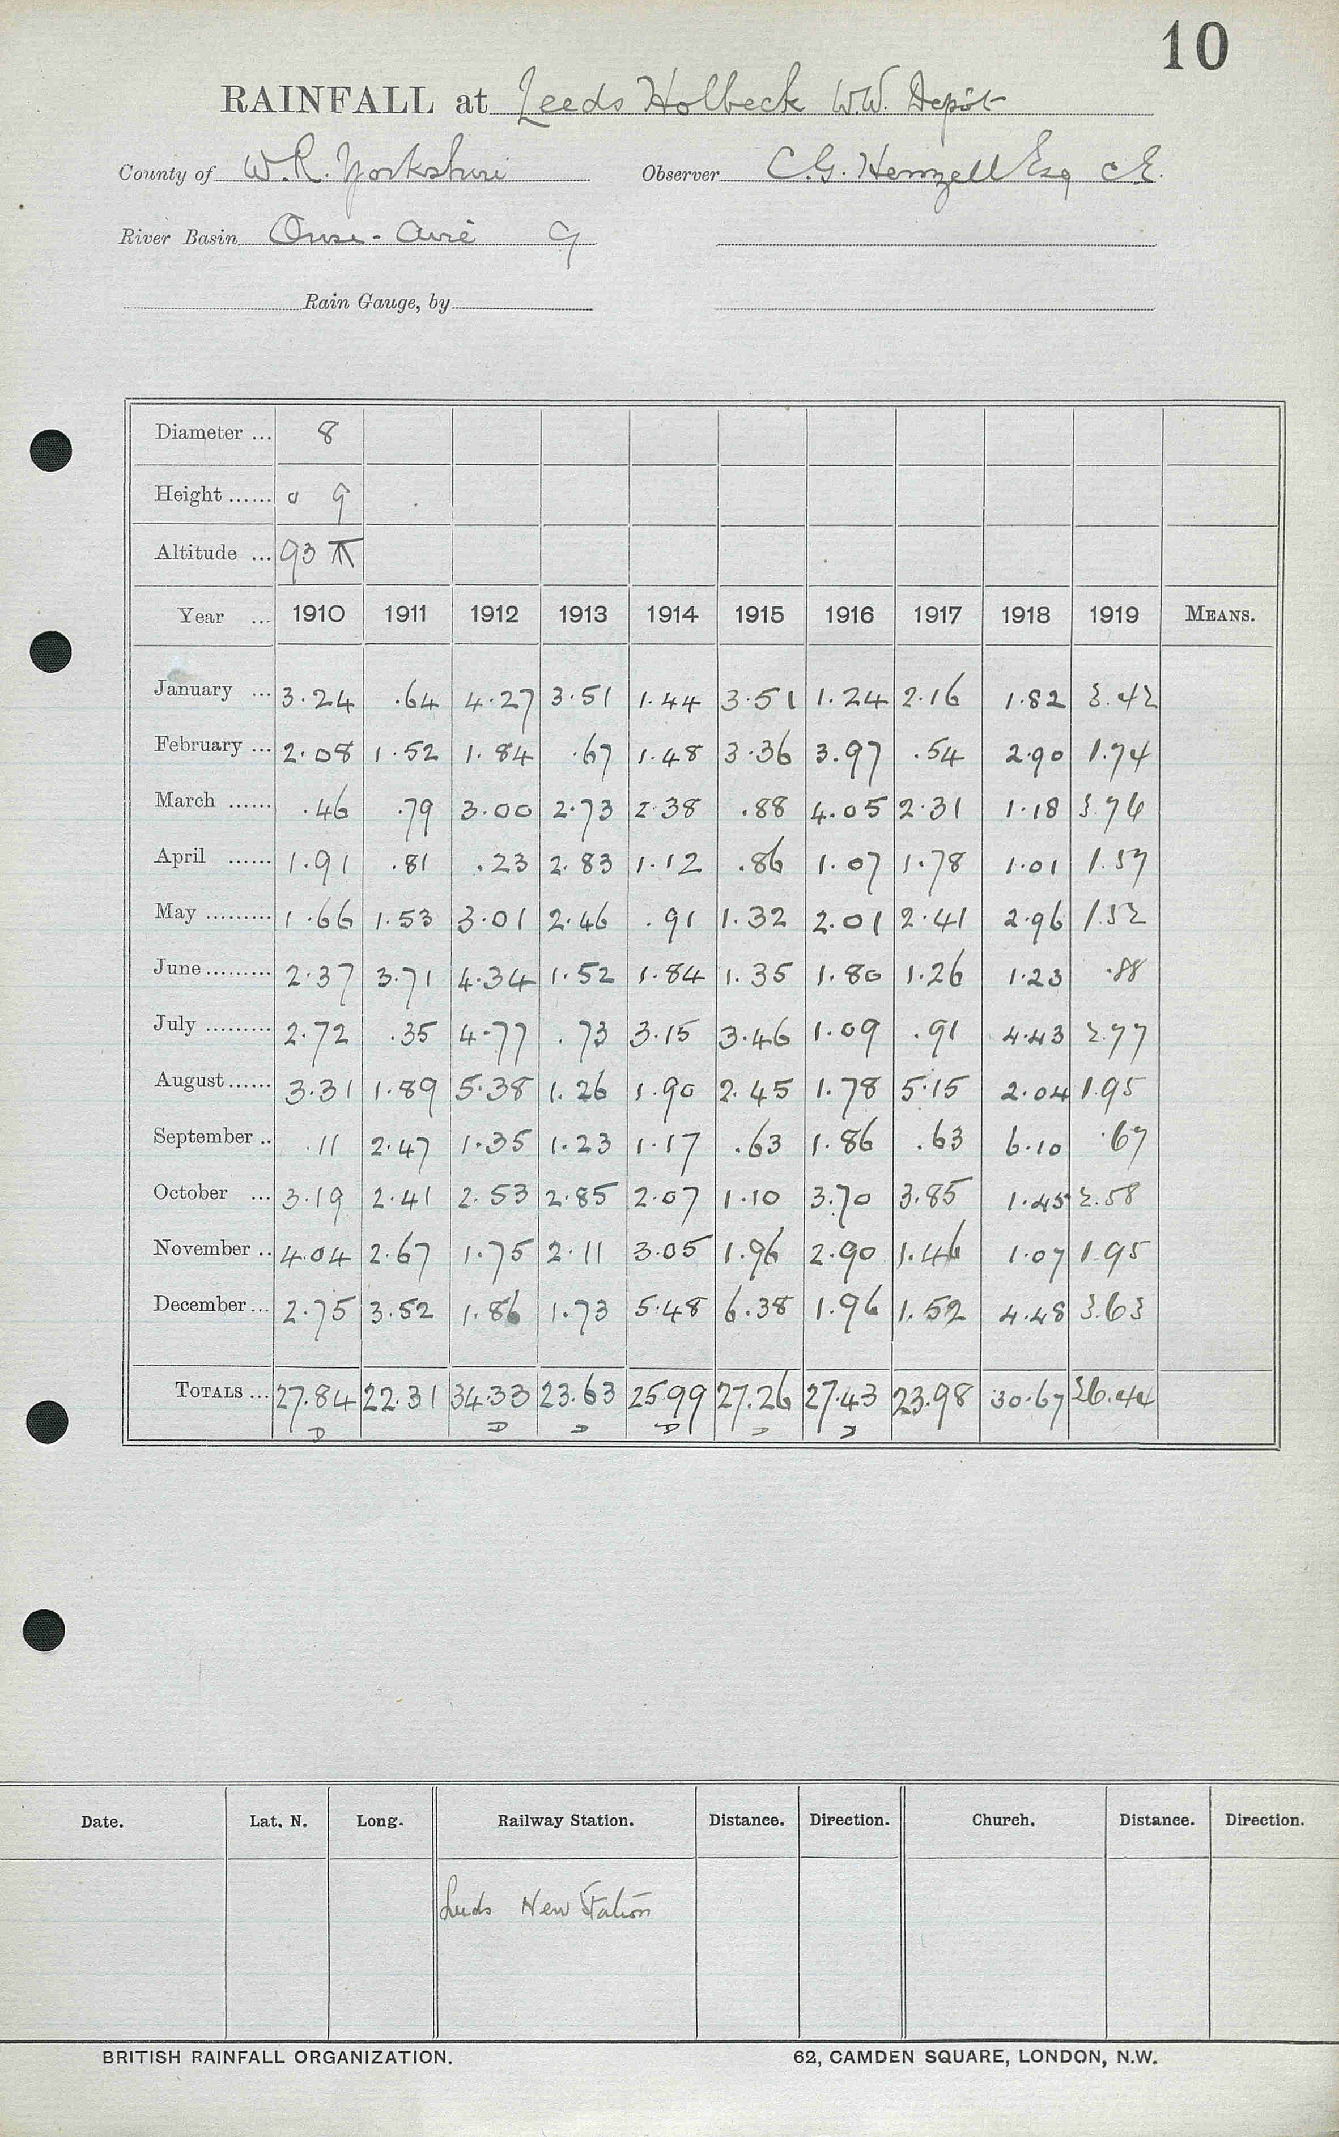 10
RAINFALL at Leeds Holbeck W.W. Depôt
County of W.R. Yorkshire Observer C.G. Henzell Esq C.E.
River Basin Ouse - Aire 9
Rain Gauge, by
Diameter ... 8
Height ...... 0 9
Altitude ... 93
Year ... 1910 1911 1912 1913 1914 1915 1916 1917 1918 1919 MEANS.
January ... 3.24 .64 4.27 3.51 1.44 3.51 1.24 2.16 1.82 3.42
February ... 2.08 1.52 1.84 .67 1.48 3.36 3.97 .54 2.90 1.74
March ...... .46 .79 3.00 2.73 2.38 .88 4.05 2.31 1.18 3.76
April ...... 1.91 .81 .23 2.83 1.12 .86 1.07 1.78 1.01 1.57
May ......... 1.66 1.53 3.01 2.46 .91 1.32 2.01 2.41 2.96 1.52
June ......... 2.37 3.71 4.34 1.52 1.84 1.35 1.80 1.26 1.23 .88
July ......... 2.72 .35 4.77 .73 3.15 3.46 1.09 .91 4.43 2.77
August ...... 3.31 1.89 5.38 1.26 1.90 2.45 1.78 5.15 2.04 1.95
September .. .11 2.47 1.35 1.23 1.17 .63 1.86 .63 6.10 .67
October ... 3.19 2.41 2.53 2.85 2.07 1.10 3.70 3.85 1.45 2.58
November .. 4.04 2.67 1.75 2.11 3.05 1.96 2.90 1.46 1.07 1.95
December ... 2.75 3.52 1.86 1.73 5.48 6.38 1.96 1.52 4.48 3.63
TOTALS ... 27.84 22.31 34.33 23.63 25.99 27.26 27.43 23.98 30.67 26.44
D D D D D D
Date. Lat. N. Long. Railway Station. Distance. Direction. Church. Distance. Direction.
Leeds New Station
BRITISH RAINFALL ORGANIZATION. 62, CAMDEN SQUARE, LONDON, N.W.